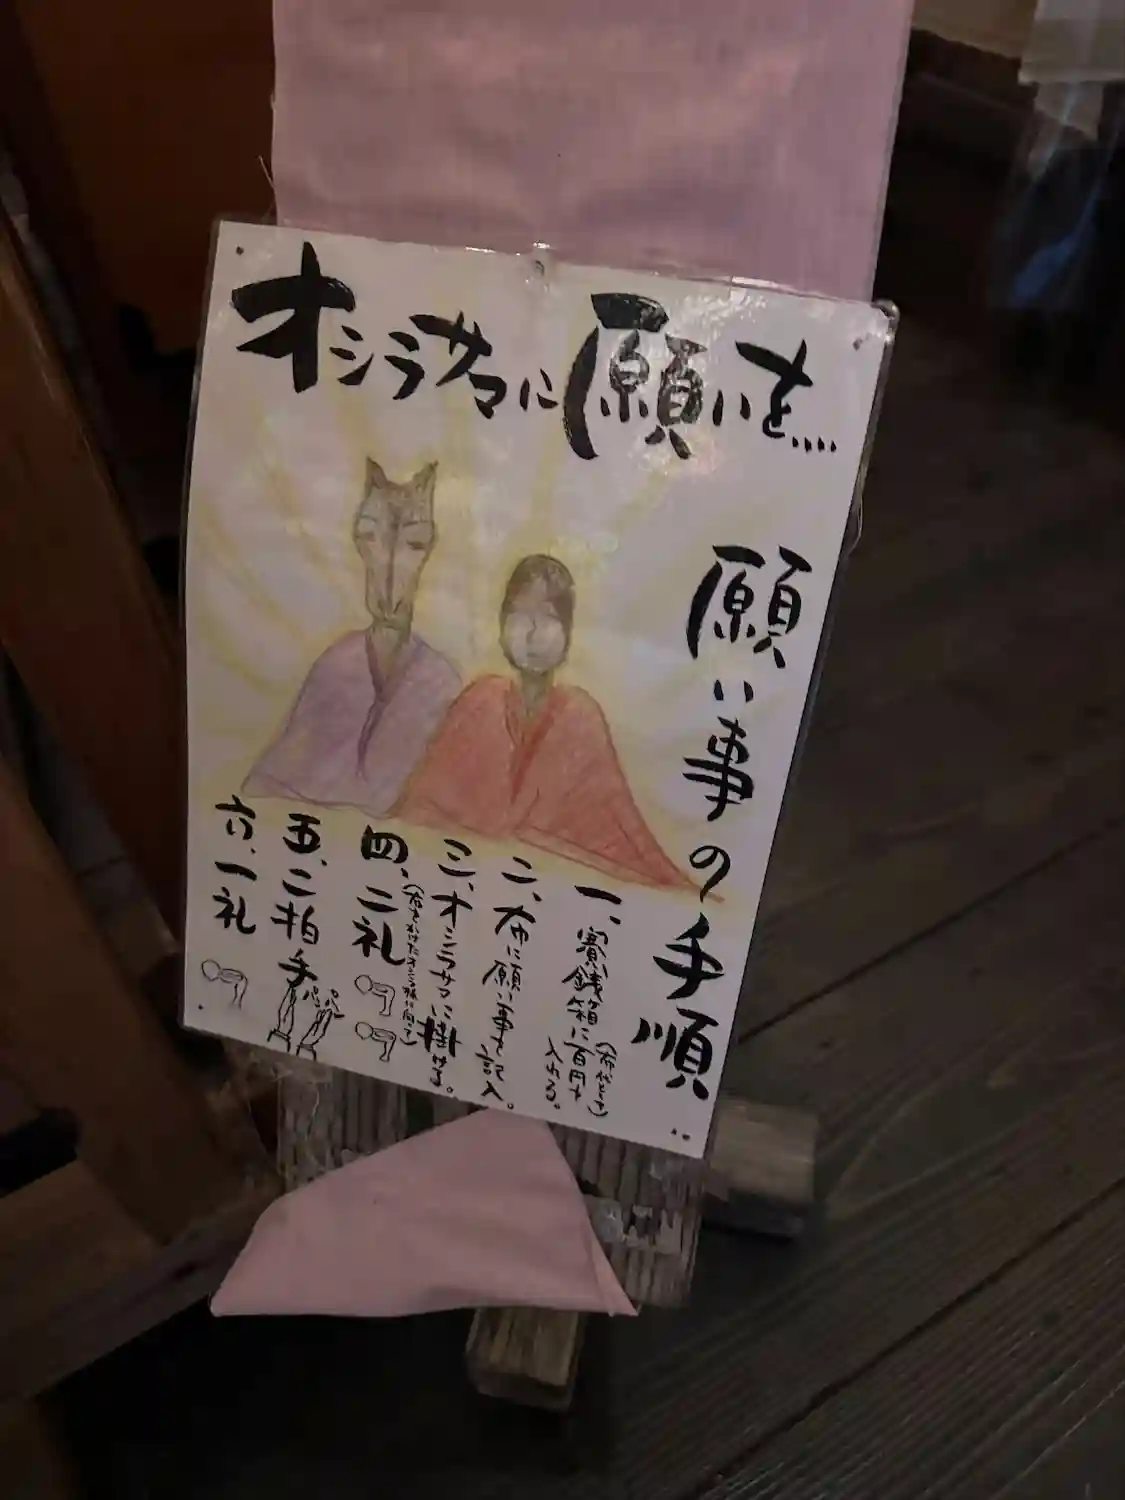 オシラサマに願いを....
願い事の手順
一、賽銭箱に百円を入れる。
(布代として)
二、布に願い事を記入。
三、オシラサマに掛ける。
四、二礼
五、二拍手
パン
パン
六、一礼